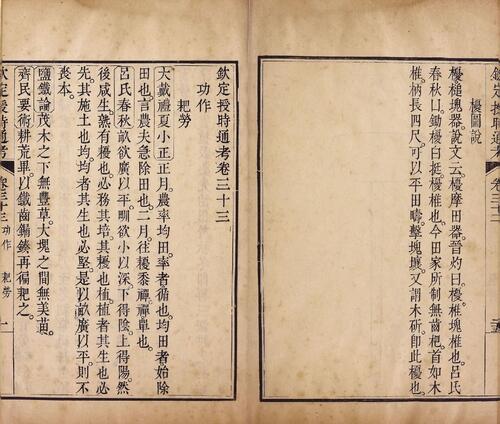 欽定授時通考 卷三十二
耰圖說
耰槌塊器。說文云。耰摩田器。晉灼曰。耰椎塊椎也。呂氏
春秋曰。鋤耰白挺。耰椎也。今田家所制無齒杷。首如木
椎。柄長四尺。可以平田疇。擊塊壤。又謂木斫。即此耰也。
欽定授時通考卷三十三
功作
耙勞
大戴禮夏小正正月。農率均田。率者循也。均田者始除
田也。言農夫急除田也。二月。往耰黍禪。禪單也。
呂氏春秋畝欲廣以平。甽欲小以深。下得陰。上得陽。然
後咸生。熟有耰也。必務其培。其耰也植。植者其生也必
先。其施土也均。均者其生也必堅。是以畝廣以平。則不
喪本。
鹽鐵論茂木之下無豐草。大塊之間無美苗。
齊民要術耕荒畢。以鐵齒楱再徧耙之。
欽定授時通考 卷三十三 功作 耙勞 一